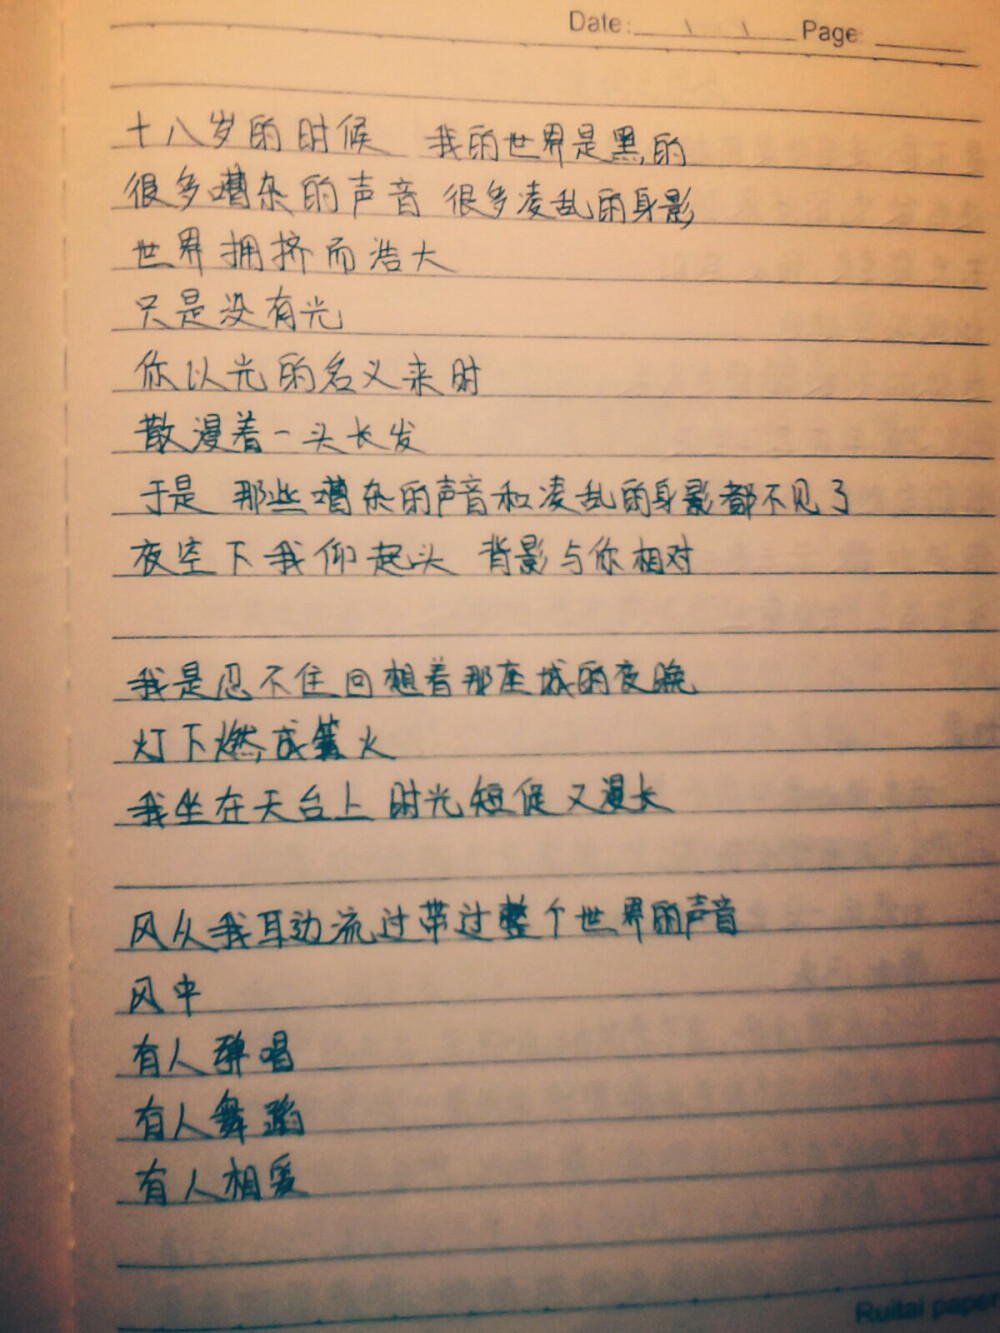 Date: \ \ Page
十八岁的时候 我的世界是黑的
很多嘈杂的声音 很多凌乱的身影
世界拥挤而浩大
只是没有光
你以光的名义来时
散漫着一头长发
于是 那些嘈杂的声音和凌乱的身影都不见了
夜空下我仰起头 背影与你相对
我是忍不住回想着那座城的夜晚
灯下燃成篝火
我坐在天台上 时光短促又漫长
风从我耳边流过带过整个世界的声音
风中
有人弹唱
有人舞蹈
有人相爱
Ruitai paper